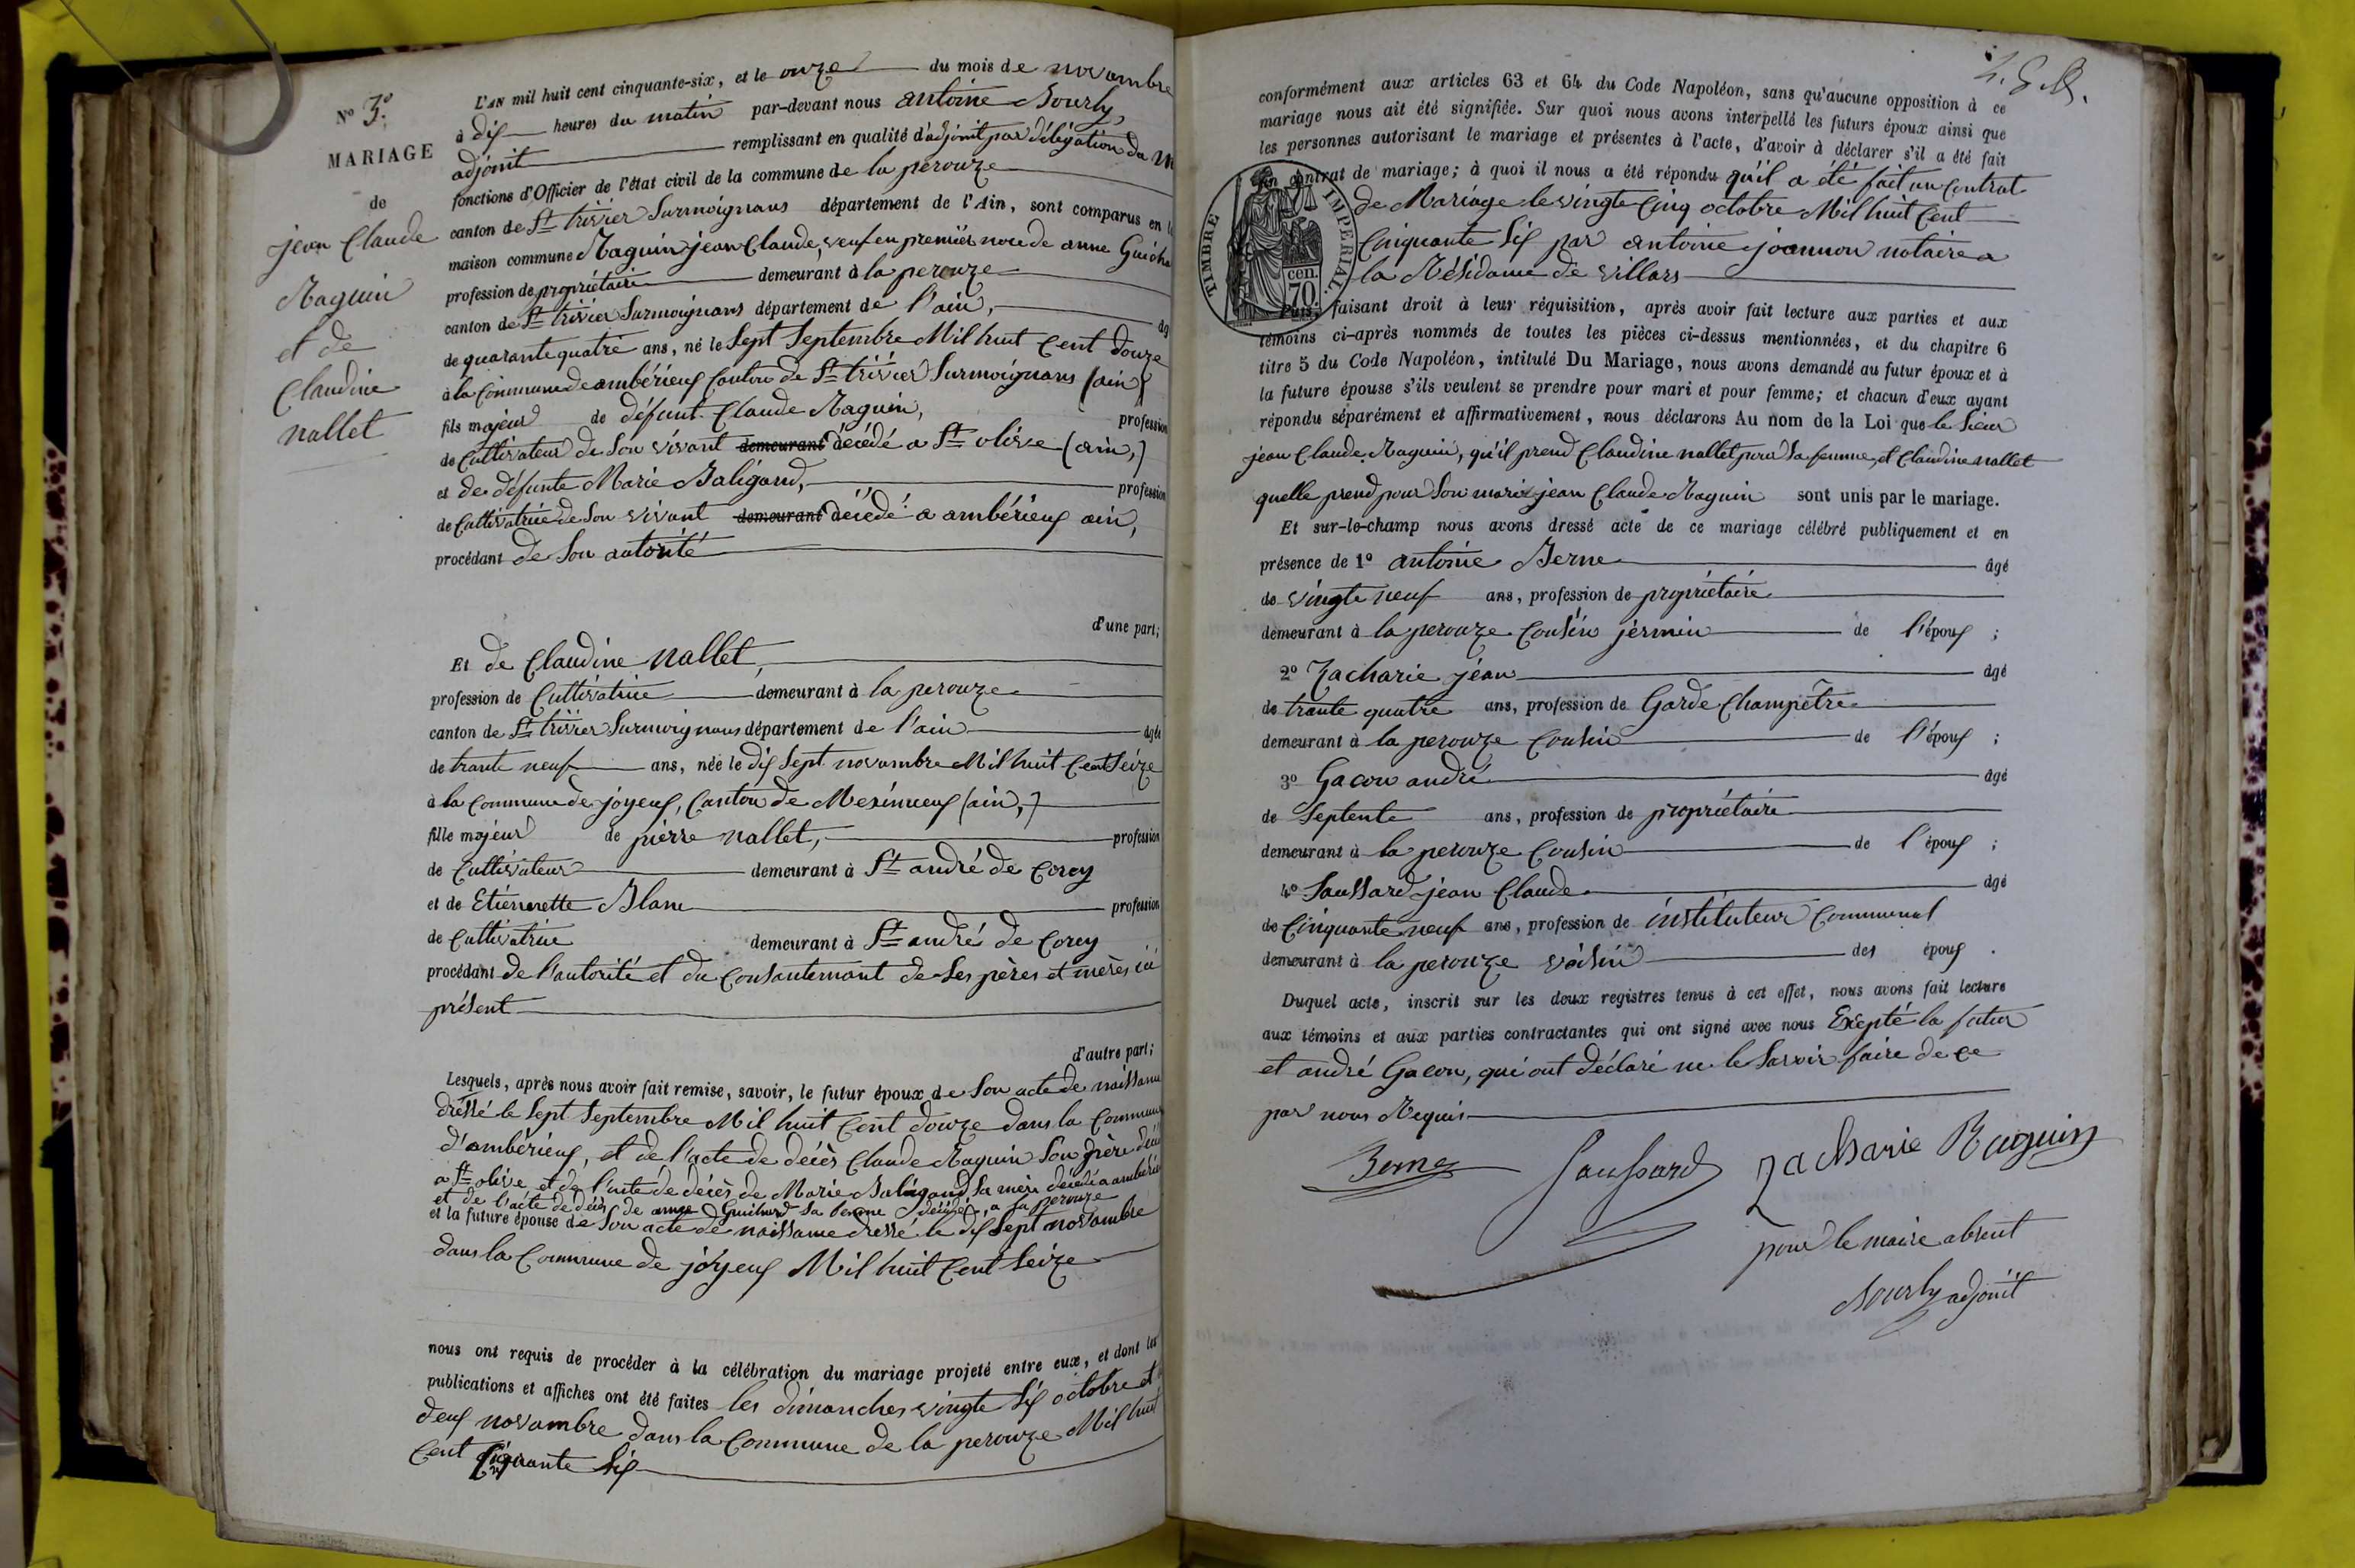 Nº 3º.
MARIAGE
de
jean Claude
Raguin
et de
Claudine
nallet
L'AN mil huit cent cinquante-six, et le onze du mois de novambre
à dix heures du matin par-devant nous antoine Bourly,
adjoint remplissant en qualité d'adjoint par délégation du
fonctions d'Officier de l'état civil de la commune de la perouze
canton de St trivier Surmoignans département de l'Ain, sont comparus en la
maison commune Raguin jean Claude, veuf en premier noce de anne
profession de propriétaire demeurant à la perouze
canton de St trivier Surmoignans département de l'ain, âgé
de quarante quatre ans, né le Sept Septembre Mil huit Cent douze
à la Commune de ambérieux Canton de St trivier Surmoignans (ain)
fils majeur de défunt Claude Raguin, profession
de Cultivateur de Son vivant demeurant décédé a St olive (ain,)
et de défunte Marie Baligand, profession
de Cultivatrice de Son vivant demeurant décédé a ambérieux ain,
procédant de Son autorité
d'une part;
Et de Claudine nallet,
profession de Cultivatrice demeurant à la perouze
canton de St trivier Surmoignans département de l'ain âgée
de trante neuf ans, née le dix Sept novambre Mil huit Cent Seize
à la Commune de joyeux, Canton de Meximieux (ain,)
fille majeur de pierre nallet, profession
de Cultivateur demeurant à St andré de Corcy
et de Etiennette Blanc profession
de Cultivatrice demeurant à St andré de Corcy
procédant de l'autorité et du Consantemant de Ses pères et mères ici
présent
d'autre part;
Lesquels, après nous avoir fait remise, savoir, le futur époux de Son acte de naissance
dréssé le Sept Septembre Mil huit Cent douze dans la Commune
d'ambérieux, et de l'acte de décès Claude Raguin Son père
a St olive et de l'acte de décès de Marie Baligand Sa mère décédé a
et de l'acte de décès de anne Sa femme décédé a la perouze
et la future épouse de Son acte de naissance dressé le dix Sept novambre
dans la Commune de joyeux Mil huit Cent Seize
nous ont requis de procéder à la célébration du mariage projeté entre eux, et dont les
publications et affiches ont été faites les dimanches vingte Six octobre et
deux novambre dans la Commune de la perouze Mil huit
Cent Cinquante Six
conformément aux articles 63 et 64 du Code Napoléon, sans qu'aucune opposition à ce
mariage nous ait été signifiée. Sur quoi nous avons interpellé les futurs époux ainsi que
les personnes autorisant le mariage et présentes à l'acte, d'avoir à déclarer s'il a été fait
un contrat de mariage; à quoi il nous a été répondu qu'il a été fait un Contrat
de Mariage le vingte Cinq octobre Mil huit Cent
Cinquante Six par antoine joannon notaire a
la Résidance de villars
TIMBRE IMPERIAL
cen.
70.
Puis, faisant droit à leur réquisition, après avoir fait lecture aux parties et aux
témoins ci-après nommés de toutes les pièces ci-dessus mentionnées, et du chapitre 6
titre 5 du Code Napoléon, intitulé Du Mariage, nous avons demandé au futur époux et à
la future épouse s'ils veulent se prendre pour mari et pour femme; et chacun d'eux ayant
répondu séparément et affirmativement, nous déclarons Au nom de la Loi que le Sieur
jean Claude Raguin, qu'il prend Claudine nallet pour Sa femme, et Claudine nallet
quelle prend pour Son mari jean Claude Raguin sont unis par le mariage.
Et sur-le-champ nous avons dressé acte de ce mariage célébré publiquement et en
présence de 1º antoine Berne âgé
de vingte neuf ans, profession de propriétaire
demeurant à la perouze Cousin jérmin de l'époux ;
2º Zacharie jean âgé
de trante quatre ans, profession de Garde Champêtre
demeurant à la perouze Cousin de l'époux ;
3º Gacon andré âgé
de Septente ans, profession de propriétaire
demeurant à la perouze Cousin de l'époux ;
4º Saussard jean Claude âgé
de Cinquante neuf ans, profession de instituteur Communal
demeurant à la perouze voisin des époux .
Duquel acte, inscrit sur les deux registres tenus à cet effet, nous avons fait lecture
aux témoins et aux parties contractantes qui ont signé avec nous Excepté la futur
et andré Gacon, qui ont déclaré ne le Savoir faire de ce
par nous Requis
Berne Saussard Zacharie Raguin
pour le maire absent
Bourly adjoint